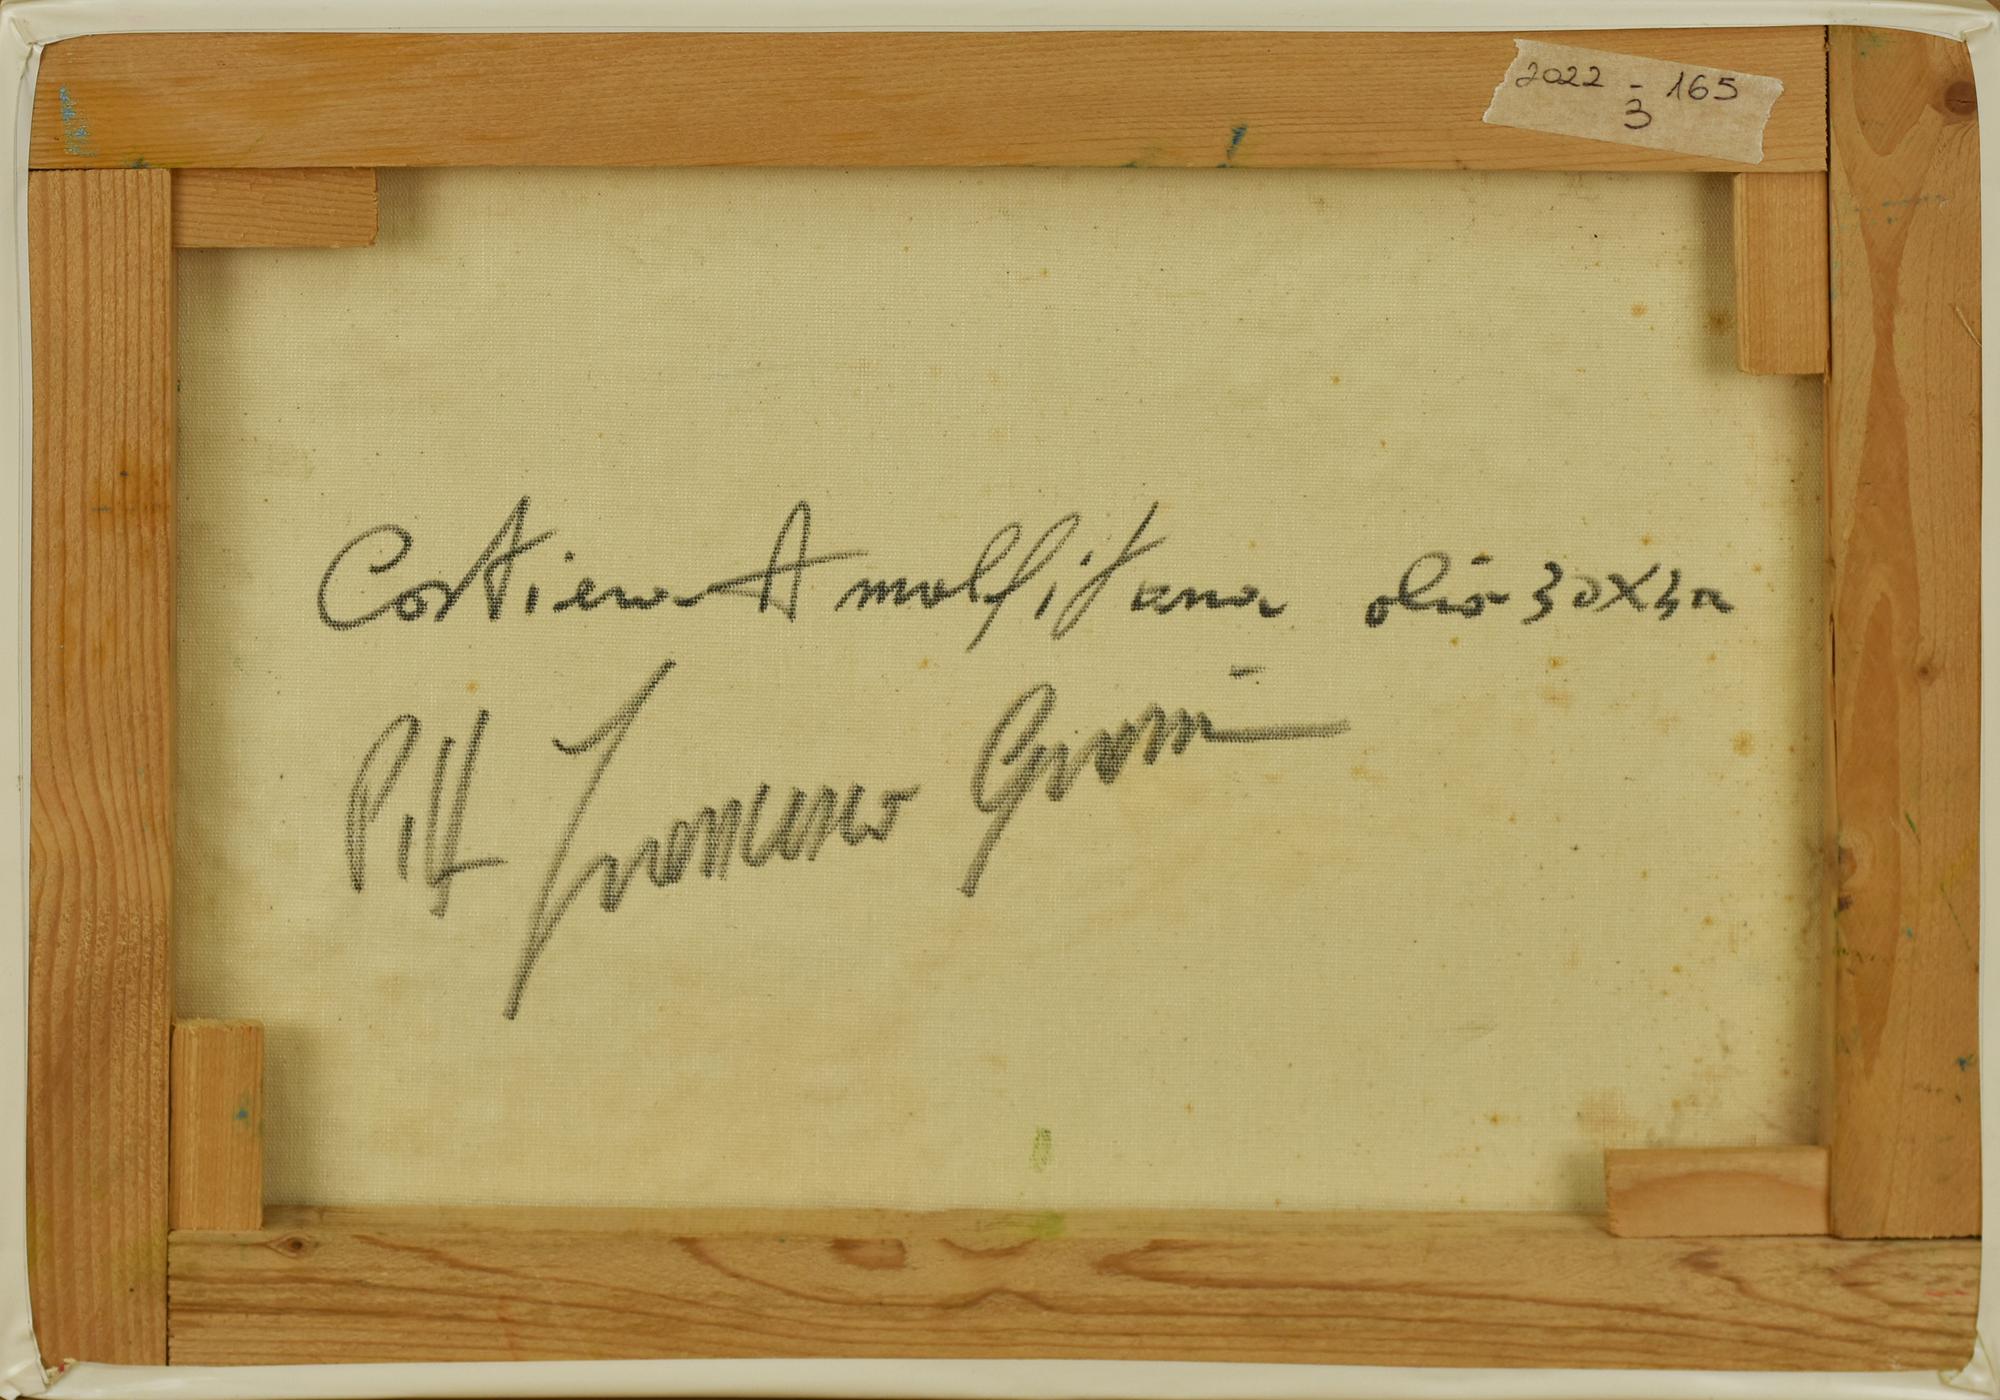 2022 - 165
3
Costiera Amalfitana olio 30X
Pitt Francesco